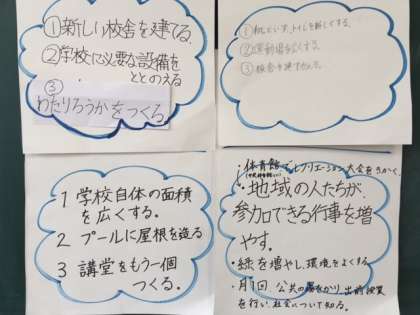 ①新しい校舎を建てる.
②学校に必要な設備を
ととのえる
③
わたりろうかをつくる
①机、いす、トイレを新しくする。
②運動場を広くする。
③校舎を建てなおす。
1 学校自体の面積
を広くする。
2 プールに屋根を造る
3 講堂をもう一個
つくる。
・体育館でレクリエーション大会をひらく。
・地域の人たちが、
参加できる行事を増
やす。
・緑を増やし、環境をよくする。
・月1回、公共の
出前授業
を行い社会について知る。